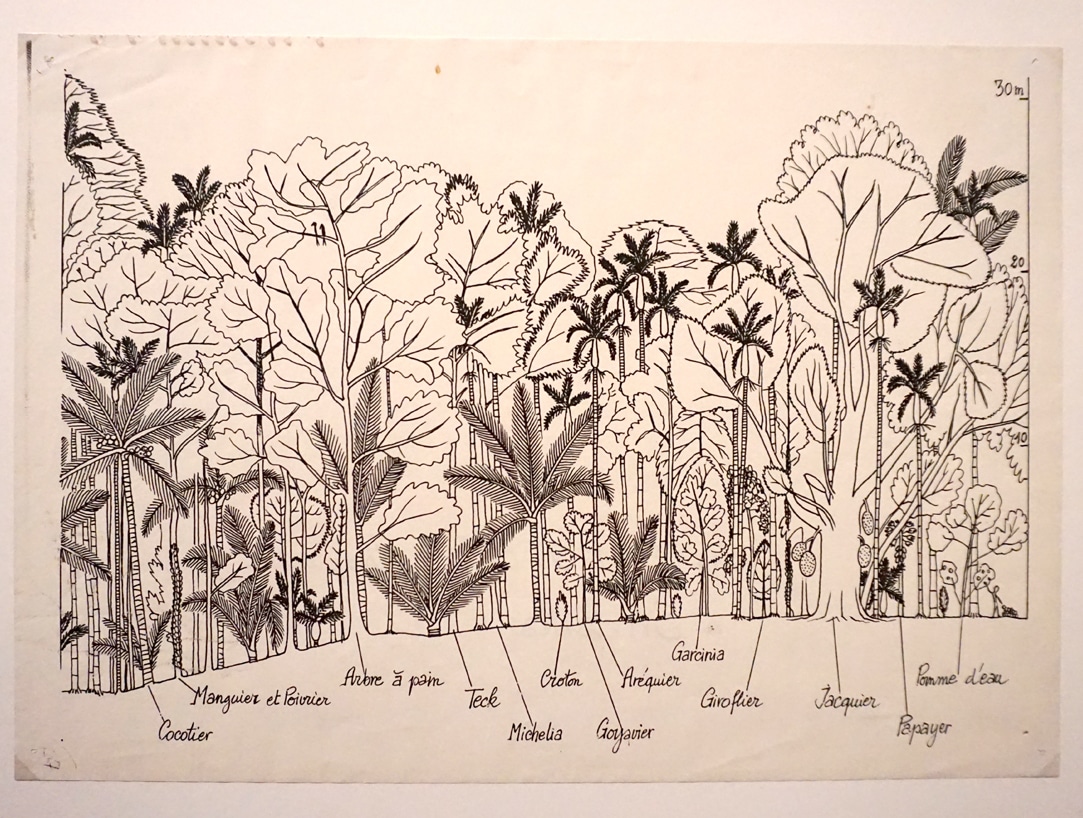 30m
20
10
Garcinia
Manguier et Poivrier
Arbre à pain
Teck
Croton
Aréquier
Giroflier
Jacquier
Pomme d'eau
Cocotier
Michelia
Goyavier
Papayer